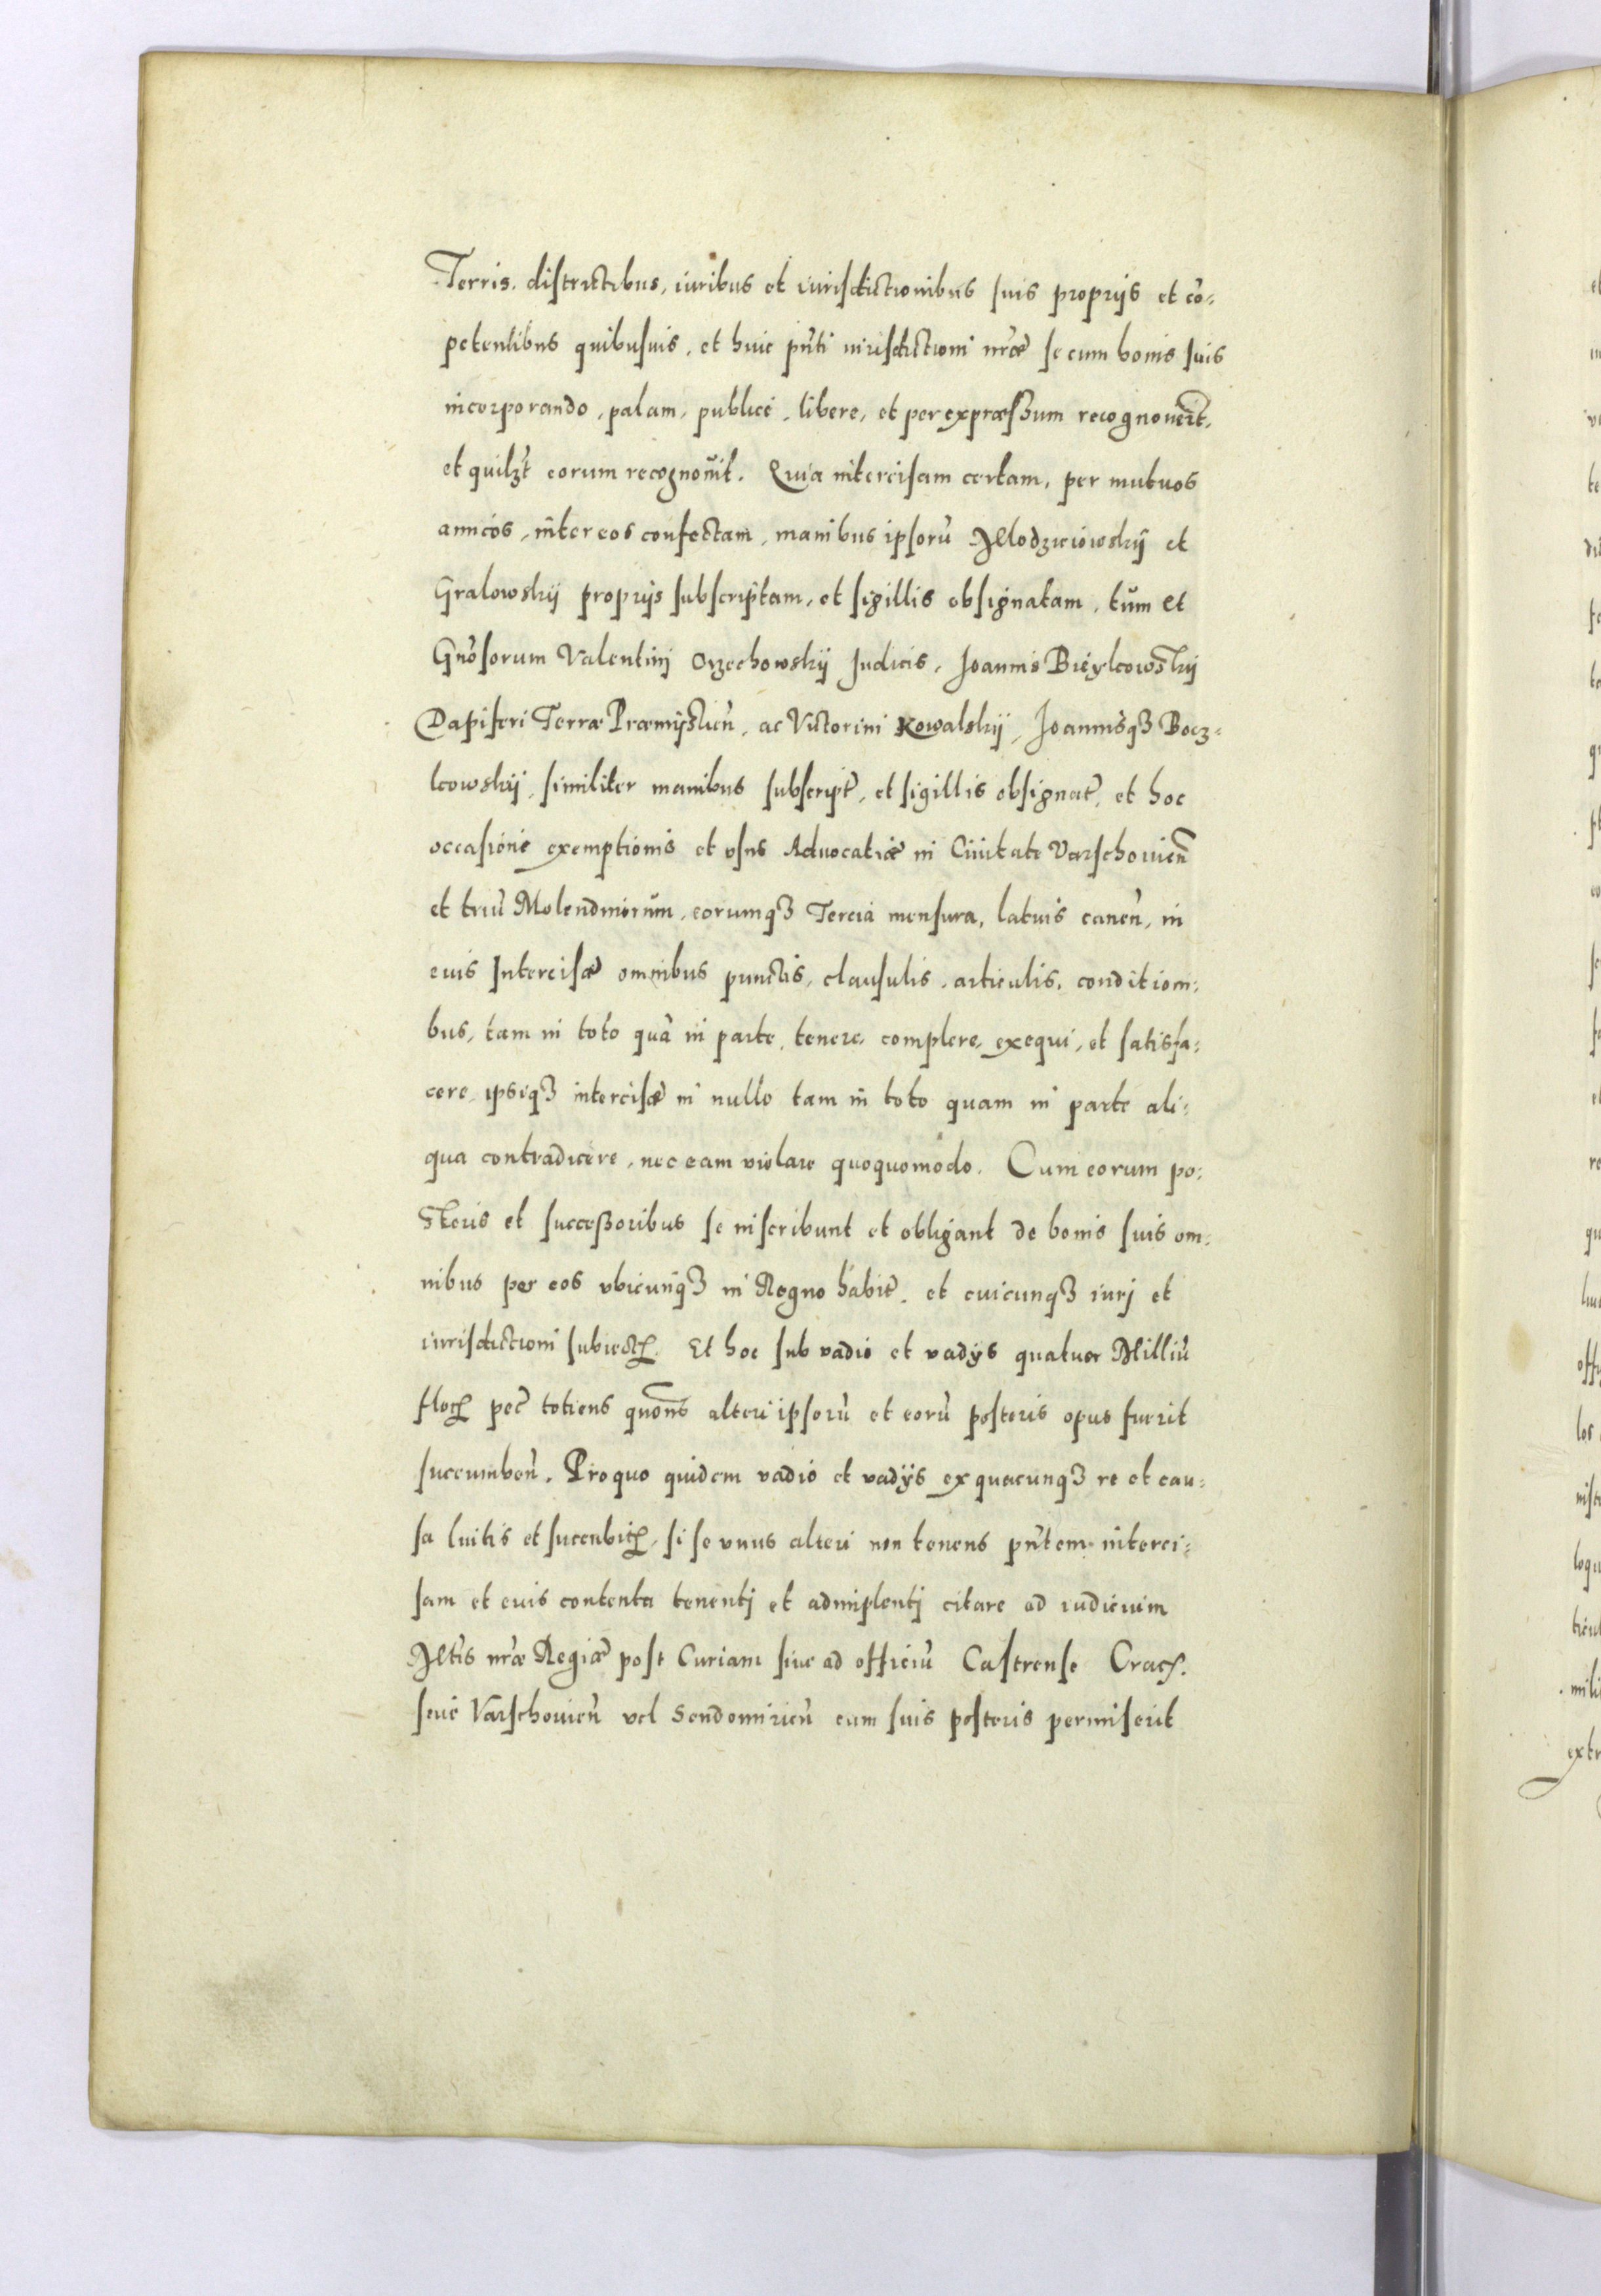 Terris, districtibus, iuribus et iurisdictionibus suis proprijs et cō-
petentibus quibusuis, et huic pn̄ti iurisdictioni nrœ̄ se cum bonis suis
incorporando, palam, publicè, libere, et per expræssum recognouer̄t,
et quilꝫt eorum recognouit. Quia intercisam certam, per mutuos
amicos, inter eos confectam, manibus ipsorū Mlodzieiowskij et
Gralowskij proprijs subscriptam, et sigillis obsignatam, tum et
Gnōsorum Valentinj Orzechowskij Judicis, Joannis Bieykowskij
Dapiferi Terræ Præmysliēn, ac Victorini Kowalskij, Joannisqꝫ Bocz-
kowskij, similiter manibus subscript̄, et sigillis obsignat̄, et hoc
occasione exemptionis et vsus Aduocatiæ in Ciuitate Varschouien̄
et triū Molendinorum, eorumqꝫ Tercia mensura, latius canēn, in
euis Intercisæ omnibus punctis, clausulis, articulis, condition-
bus, tam in toto quā in parte, tenere, complere, exequi, et satisfa-
cere, ipsiqꝫ intercisæ in nullo tam in toto quam in parte ali-
qua contradicere, nec eam violare quoquomodo. Cum eorum po-
steris et successoribus se inscribunt et obligant de bonis suis om-
nibus per eos vbicunqꝫ in Regno habit̄, et cuicunqꝫ iurj et
iurisdictioni subiectꝝ. Et hoc sub vadio et vadys quatuor Milliū
florꝝ pec̄ totiens quon̄s alteri ipsorū et eorū posteris opus fuerit
succumbēn. Pro quo quidem vadio et vadijs ex quacunqꝫ re et cau-
sa luitis et succubitꝝ, si se vnus alteri non tenens pn̄tem interci-
sam et euis contenta tenentj et adimplentj citare ad iudicium
Mtis nræ Regiæ post Curiam siue ad officiū Castrense Crac.
seuè Varschouien̄ vel Sendomiriēn cum suis posteris permiserit